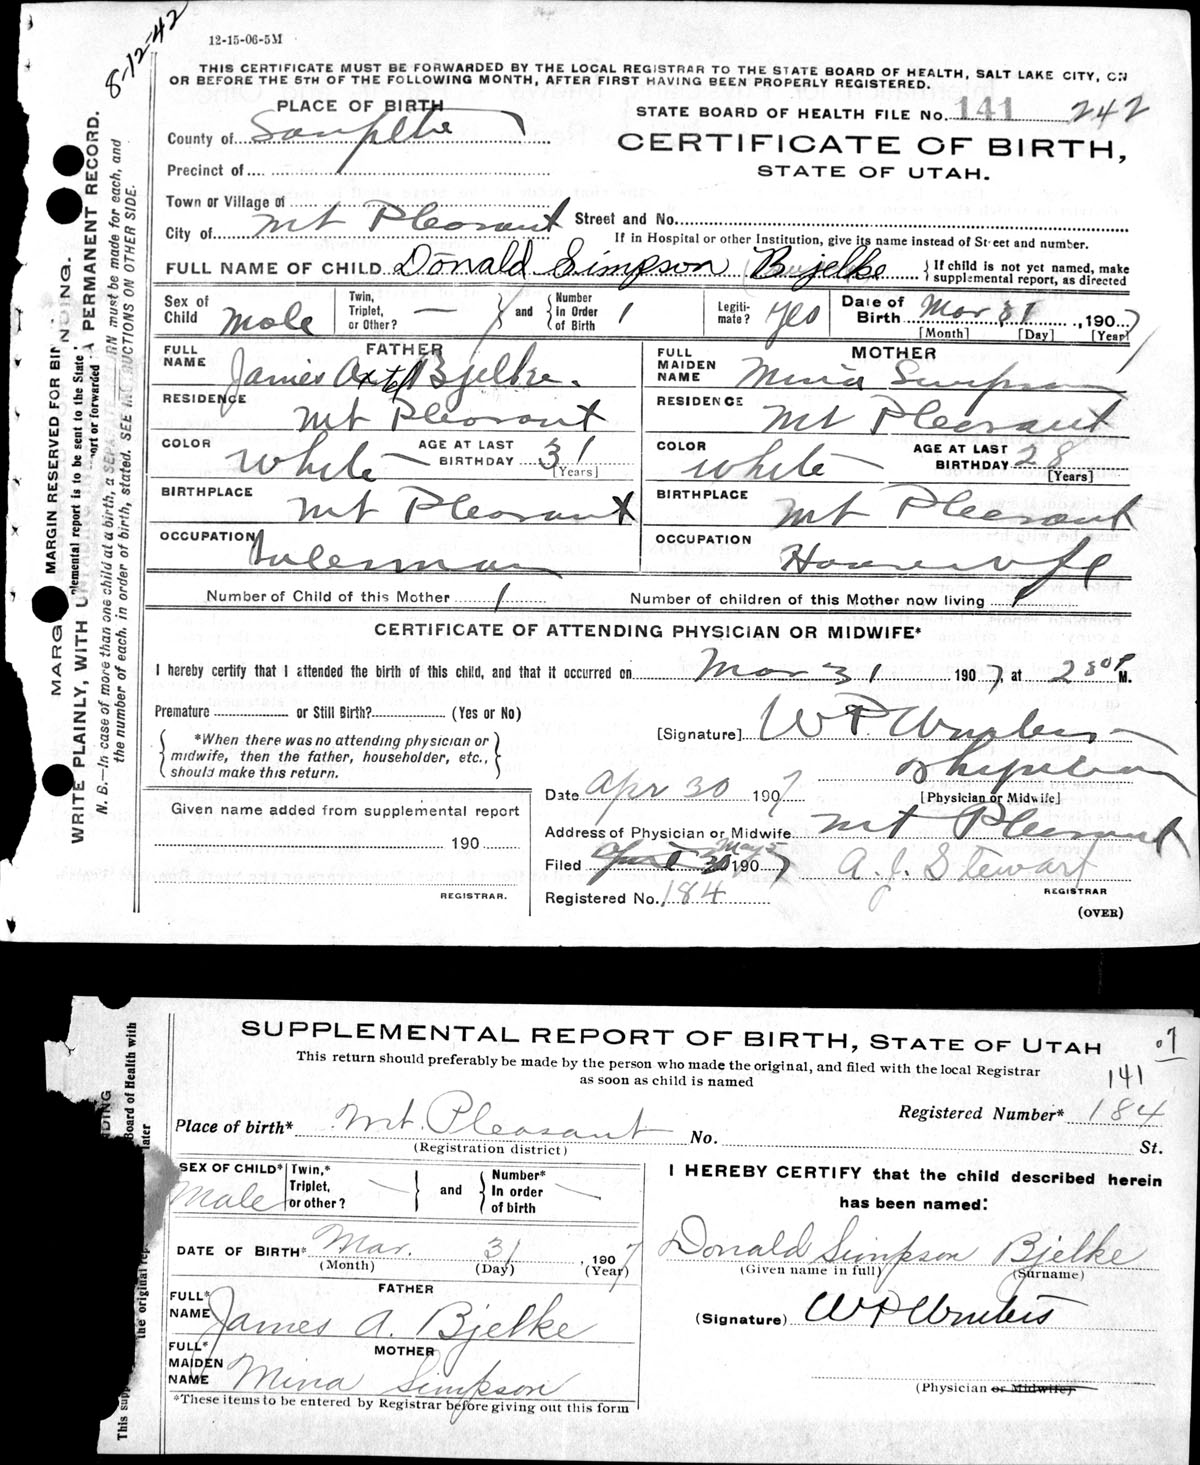 8-12-42
12-15-06-5M
THIS CERTIFICATE MUST BE FORWARDED BY THE LOCAL REGISTRAR TO THE STATE BOARD OF HEALTH, SALT LAKE CITY, ON
OR BEFORE THE 5TH OF THE FOLLOWING MONTH, AFTER FIRST HAVING BEEN PROPERLY REGISTERED.
PLACE OF BIRTH
County of Sanpete
Precinct of
Town or Village of
City of Mt Pleasant
STATE BOARD OF HEALTH FILE No. 141 242
CERTIFICATE OF BIRTH,
STATE OF UTAH.
Street and No.
If in Hospital or other Institution, give its name instead of Street and number.
FULL NAME OF CHILD Donald Simpson Bjelke { If child is not yet named, make supplemental report, as directed
Sex of Child Male Twin, Triplet, or Other? — and Number In Order of Birth 1 Legiti-mate? Yes Date of Birth Mar 31, 1907
[Month] [Day] [Year]
FATHER
FULL NAME James Axtel Bjelke.
RESIDENCE Mt Pleasant
COLOR White AGE AT LAST BIRTHDAY 31 [Years]
BIRTHPLACE Mt Pleasant
OCCUPATION Salesman
MOTHER
FULL MAIDEN NAME Mina Simpson
RESIDENCE Mt Pleasant
COLOR White AGE AT LAST BIRTHDAY 28 [Years]
BIRTHPLACE Mt Pleasant
OCCUPATION Housewife
Number of Child of this Mother 1 Number of children of this Mother now living 1
CERTIFICATE OF ATTENDING PHYSICIAN OR MIDWIFE*
I hereby certify that I attended the birth of this child, and that it occurred on Mar 31 1907, at 2 30 P M.
Premature or Still Birth? (Yes or No)
*When there was no attending physician or
midwife, then the father, householder, etc.,
should make this return.
[Signature] W P Winters
Physician
[Physician or Midwife]
Date Apr 30 1907
Address of Physician or Midwife Mt Pleasant
Filed May 5 1907 A. J. Stewart
REGISTRAR
Registered No. 184
(OVER)
Given name added from supplemental report
190
REGISTRAR.
MARGIN RESERVED FOR BINDING.
WRITE PLAINLY, WITH A PERMANENT RECORD.
N. B.—In case of more than one child at a birth, a must be made for each, and
the number of each, in order of birth, stated. SEE INSTRUCTIONS ON OTHER SIDE.
SUPPLEMENTAL REPORT OF BIRTH, STATE OF UTAH
07
This return should preferably be made by the person who made the original, and filed with the local Registrar
as soon as child is named
141
Registered Number* 184
Place of birth* Mt. Pleasant No. St.
(Registration district)
SEX OF CHILD* Male Twin,* Triplet, or other? — and Number* In order of birth —
DATE OF BIRTH* Mar. 31, 1907
(Month) (Day) (Year)
FATHER
FULL* NAME James A. Bjelke
MOTHER
FULL* MAIDEN NAME Mina Simpson
*These items to be entered by Registrar before giving out this form
I HEREBY CERTIFY that the child described herein
has been named:
Donald Simpson Bjelke
(Given name in full) (Surname)
(Signature) W P Winters
(Physician or Midwife)
Board of Health with
the original